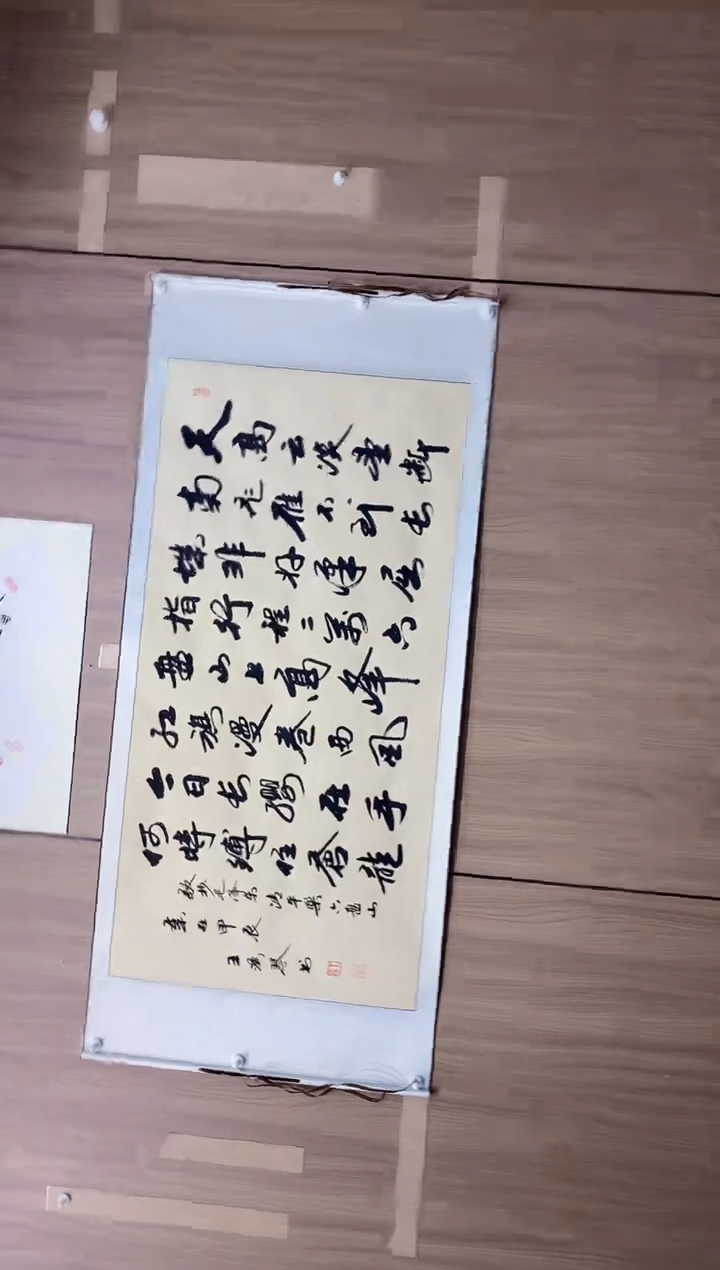 天高云淡望断
南飞雁不到长
城非好漢屈
指行程二万六
盘山上高峰
红旗漫卷西风
今日长缨在手
何時缚住蒼龍
敬抄毛泽东清平樂六盘山
岁在甲辰
王 琴书